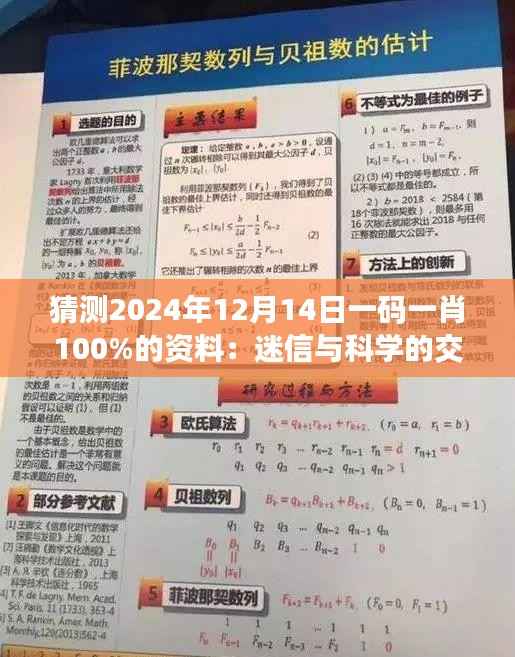 菲波那契数列与贝祖数的估计
1 选题的目的
欧几里德算法可以求
出两个正整数 a, b 的最大
公因子 d。
1733 年，意大利数学
家 Lagny 首次利用菲波那
契数列给出算法中所用除法
次数 n 的上界的估计，经
过众多人的努力，最终得到
最佳估计。
扩展欧几里德算法还给
出不定方程 ax+by=d
的一组特解 x₀, y₀，称 |x₀|,
|y₀| 为 a, b 的贝祖数。
2013 年，加拿大数学
次数是 n-1，利用两组数
的贝祖数之间的关系和归纳
假设可以证明 (1)，但 (1)
不是最佳的。
由于贝祖数是数学中的
一个基本概念，给出贝祖数
的最佳估计是一个非常有意
义的问题。解决这个问题就
是本课题的目的。
2 部分参考文献
[1] 王御文《信息化时代的数学
探索与发现》上海，2011
科学技术出版社，2013
科学技术出版社，1965
[4] T. F. de Lagny. Mem. Acad.
Sci. Paris, 11 (1733), 363-4
[5] S. A. Rankin, Amer. Math.
Monthly,120(2013)562-4
主要结果
定理：给定整数 a, b, a > b > 0，设通
过 n 次辗转相除可以得到其最大公因子 d，贝
祖数为 |x₀|, |y₀|。
利用菲波那契数列 {Fₖ}，我们得到了贝
祖数的最佳上界估计，同时还得到贝祖数的最
佳下界估计
(2)
(3)
它还推出了辗转相除的次数 n 的最佳上界
6 不等式为最佳的例子
d = 1, n = m - 2,
(2) (3) (4) 中的等号都成立，所
以不等式都是最佳的。
2) b = 2018 < 2584 (第
18个菲波那契数)，则最多用
16 次除法就能求出 2018 与任何
正整数的最大公因子。
7 方法上的创新
猜测2024年12月14日一码一肖
100%的资料：迷信与科学的交
研究过程与方法
3 欧氏算法 rₖ = qₖ₊₁rₖ₊₁ + rₖ₊₂, (r₀ = a, r₁ = b)
r₀ r₁ r₂ r₃ … rₙ₋₂ rₙ₋₁ rₙ = d rₙ₊₁ = 0
q₁ q₂ q₃ … qₙ₋₂ qₙ₋₁ qₙ
4 贝祖数列 Bₖ = qₖ₊₁Bₖ₊₁ + Bₖ₊₂, (Bₙ = 0, Bₙ₋₁ = 1)
q₁ q₂ q₃ … qₙ₋₂ qₙ₋₁ qₙ
B₀ B₁ B₂ B₃ … Bₙ₋₂ 1 0
|y₀| |x₀|
5 菲波那契数列 Fₖ₊₂ = Fₖ₊₁ + Fₖ, (F₀ = 0, F₁ = 1)
1 1 1 … 1 1
Fₙ Fₙ₋₁ Fₙ₋₂ … F₂ 1 0